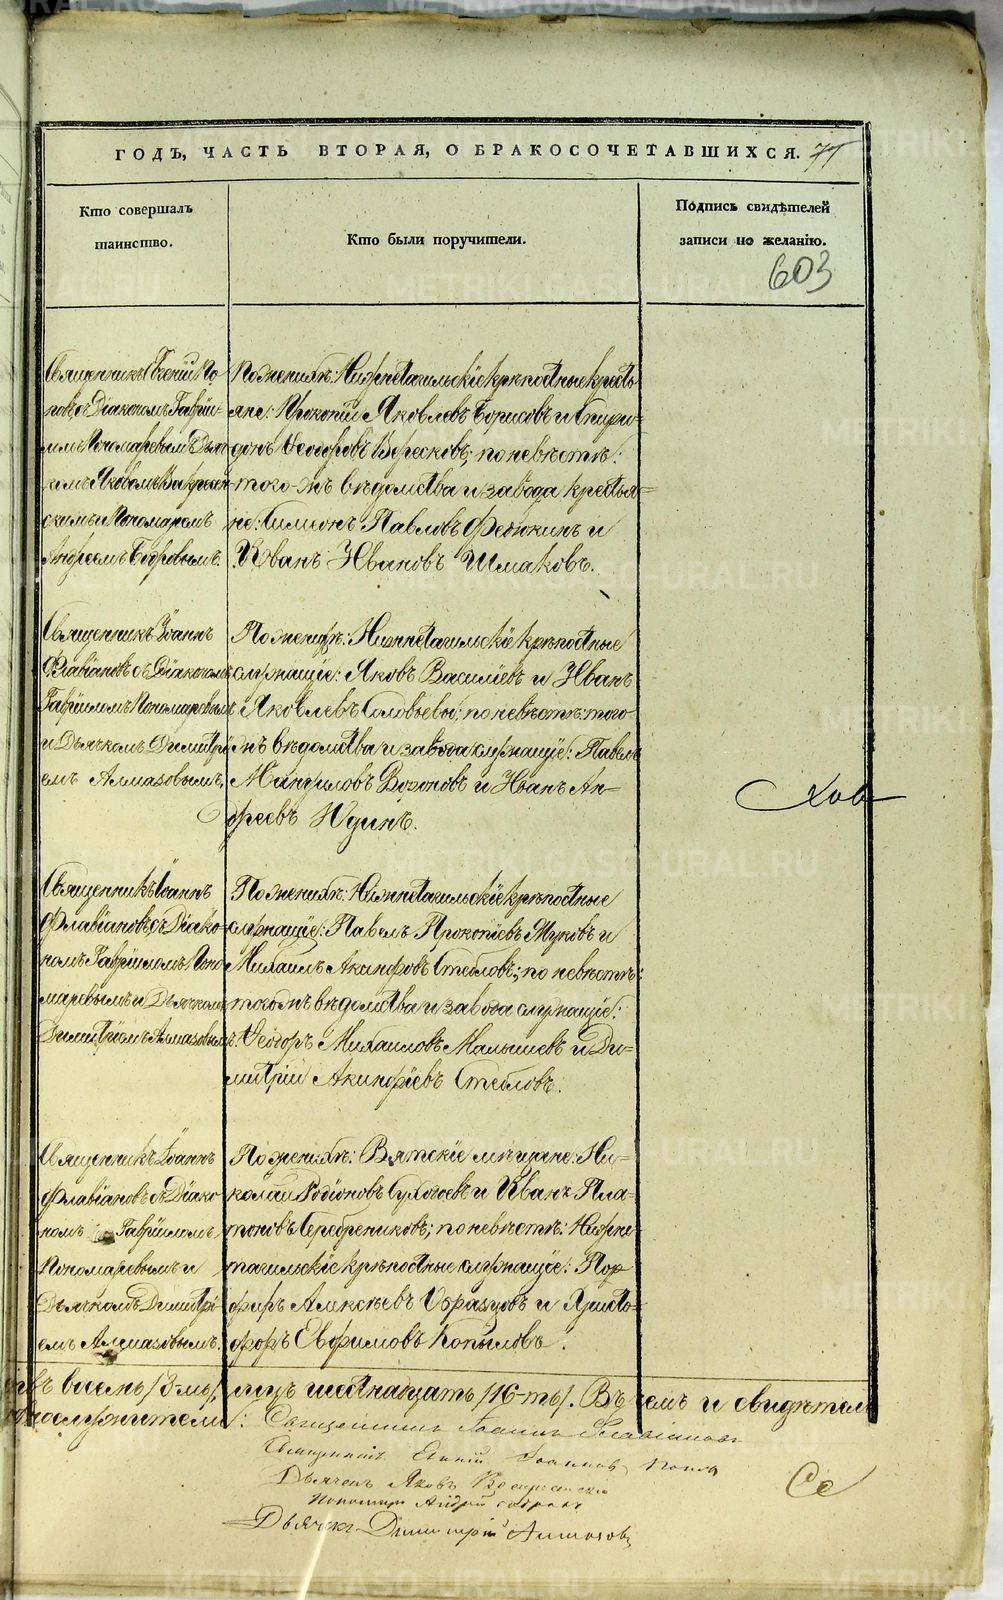 ГОДЪ, ЧАСТЬ ВТОРАЯ, О БРАКОСОЧЕТАВШИХСЯ. 77
Кто совершалъ
таинство.
Кто были поручители.
Подпись свидѣтелей
записи по желанію.
603
Священникъ Евгеній По-
повъ съ Діакономъ Гаврии-
ломъ Пономаревымъ Дьяч-
комъ Яковомъ Воскресен-
скимъ и Пономаремъ
Андреемъ
По женихѣ: Нижнетагильскіе крѣпостные кресть-
яне: Прокопій Яковлевъ Борисовъ и Спири-
донъ Ѳеодоровъ Вересковъ; по невѣстѣ:
того-жъ вѣдомства и завода крестья-
не: Симеонъ Павловъ Федюкинъ и
Иванъ Ивановъ Шмаковъ.
Священникъ Іоаннъ
Флавіановъ съ Діакономъ
Гавріиломъ Пономаревымъ
и Дьячкомъ Димитрі-
емъ Алмазовымъ.
По женихѣ: Нижнетагильскіе крѣпостные
служащіе: Яковъ Василіевъ и Иванъ
Яковлевъ Соловьевы; по невѣстѣ: того
жъ вѣдомства и завода служащіе: Павелъ
Мануиловъ и Иванъ Ан-
дреевъ Юдинъ.
Хов
Священникъ Іоаннъ
Флавіановъ съ Діако-
номъ Гавріиломъ Поно-
маревымъ и Дьячкомъ
Димитріемъ Алмазовымъ.
По женихѣ: Нижнетагильскіе крѣпостные
служащіе: Павелъ Прокопіевъ Жуковъ и
Михаилъ Акинфовъ Стебловъ; по невѣстѣ:
того жъ вѣдомства и завода служащіе:
Ѳеодоръ Михаиловъ Малышевъ и Ди-
митрій Акинфіевъ Стебловъ.
Священникъ Іоаннъ
Флавіановъ съ Діако-
номъ Гавріиломъ
Пономаревымъ и
Дьячкомъ Димитрі-
емъ Алмазовымъ.
По женихѣ: Вятскіе мѣщане: Ни-
колай Родіоновъ и Иванъ Пла-
тоновъ Серебрениковъ; по невѣстѣ: Нижне-
тагильскіе крѣпостные служащіе: Пор-
фиръ Алексѣевъ Образцовъ и Христо-
форъ Евфимовъ Копыловъ.
въ восемь /8 мъ/, лицъ шестнадцать /16-ть/. Въ чемъ и свидѣтель
Священникъ Іоаннъ Флавіановъ
Священникъ Іоанновъ Поповъ
Дьячекъ Яковъ Воскресенскій
Пономарь Андрей
Дьячекъ Димитрій Алмазовъ
Се
METRIKI.GASO-URAL.RU